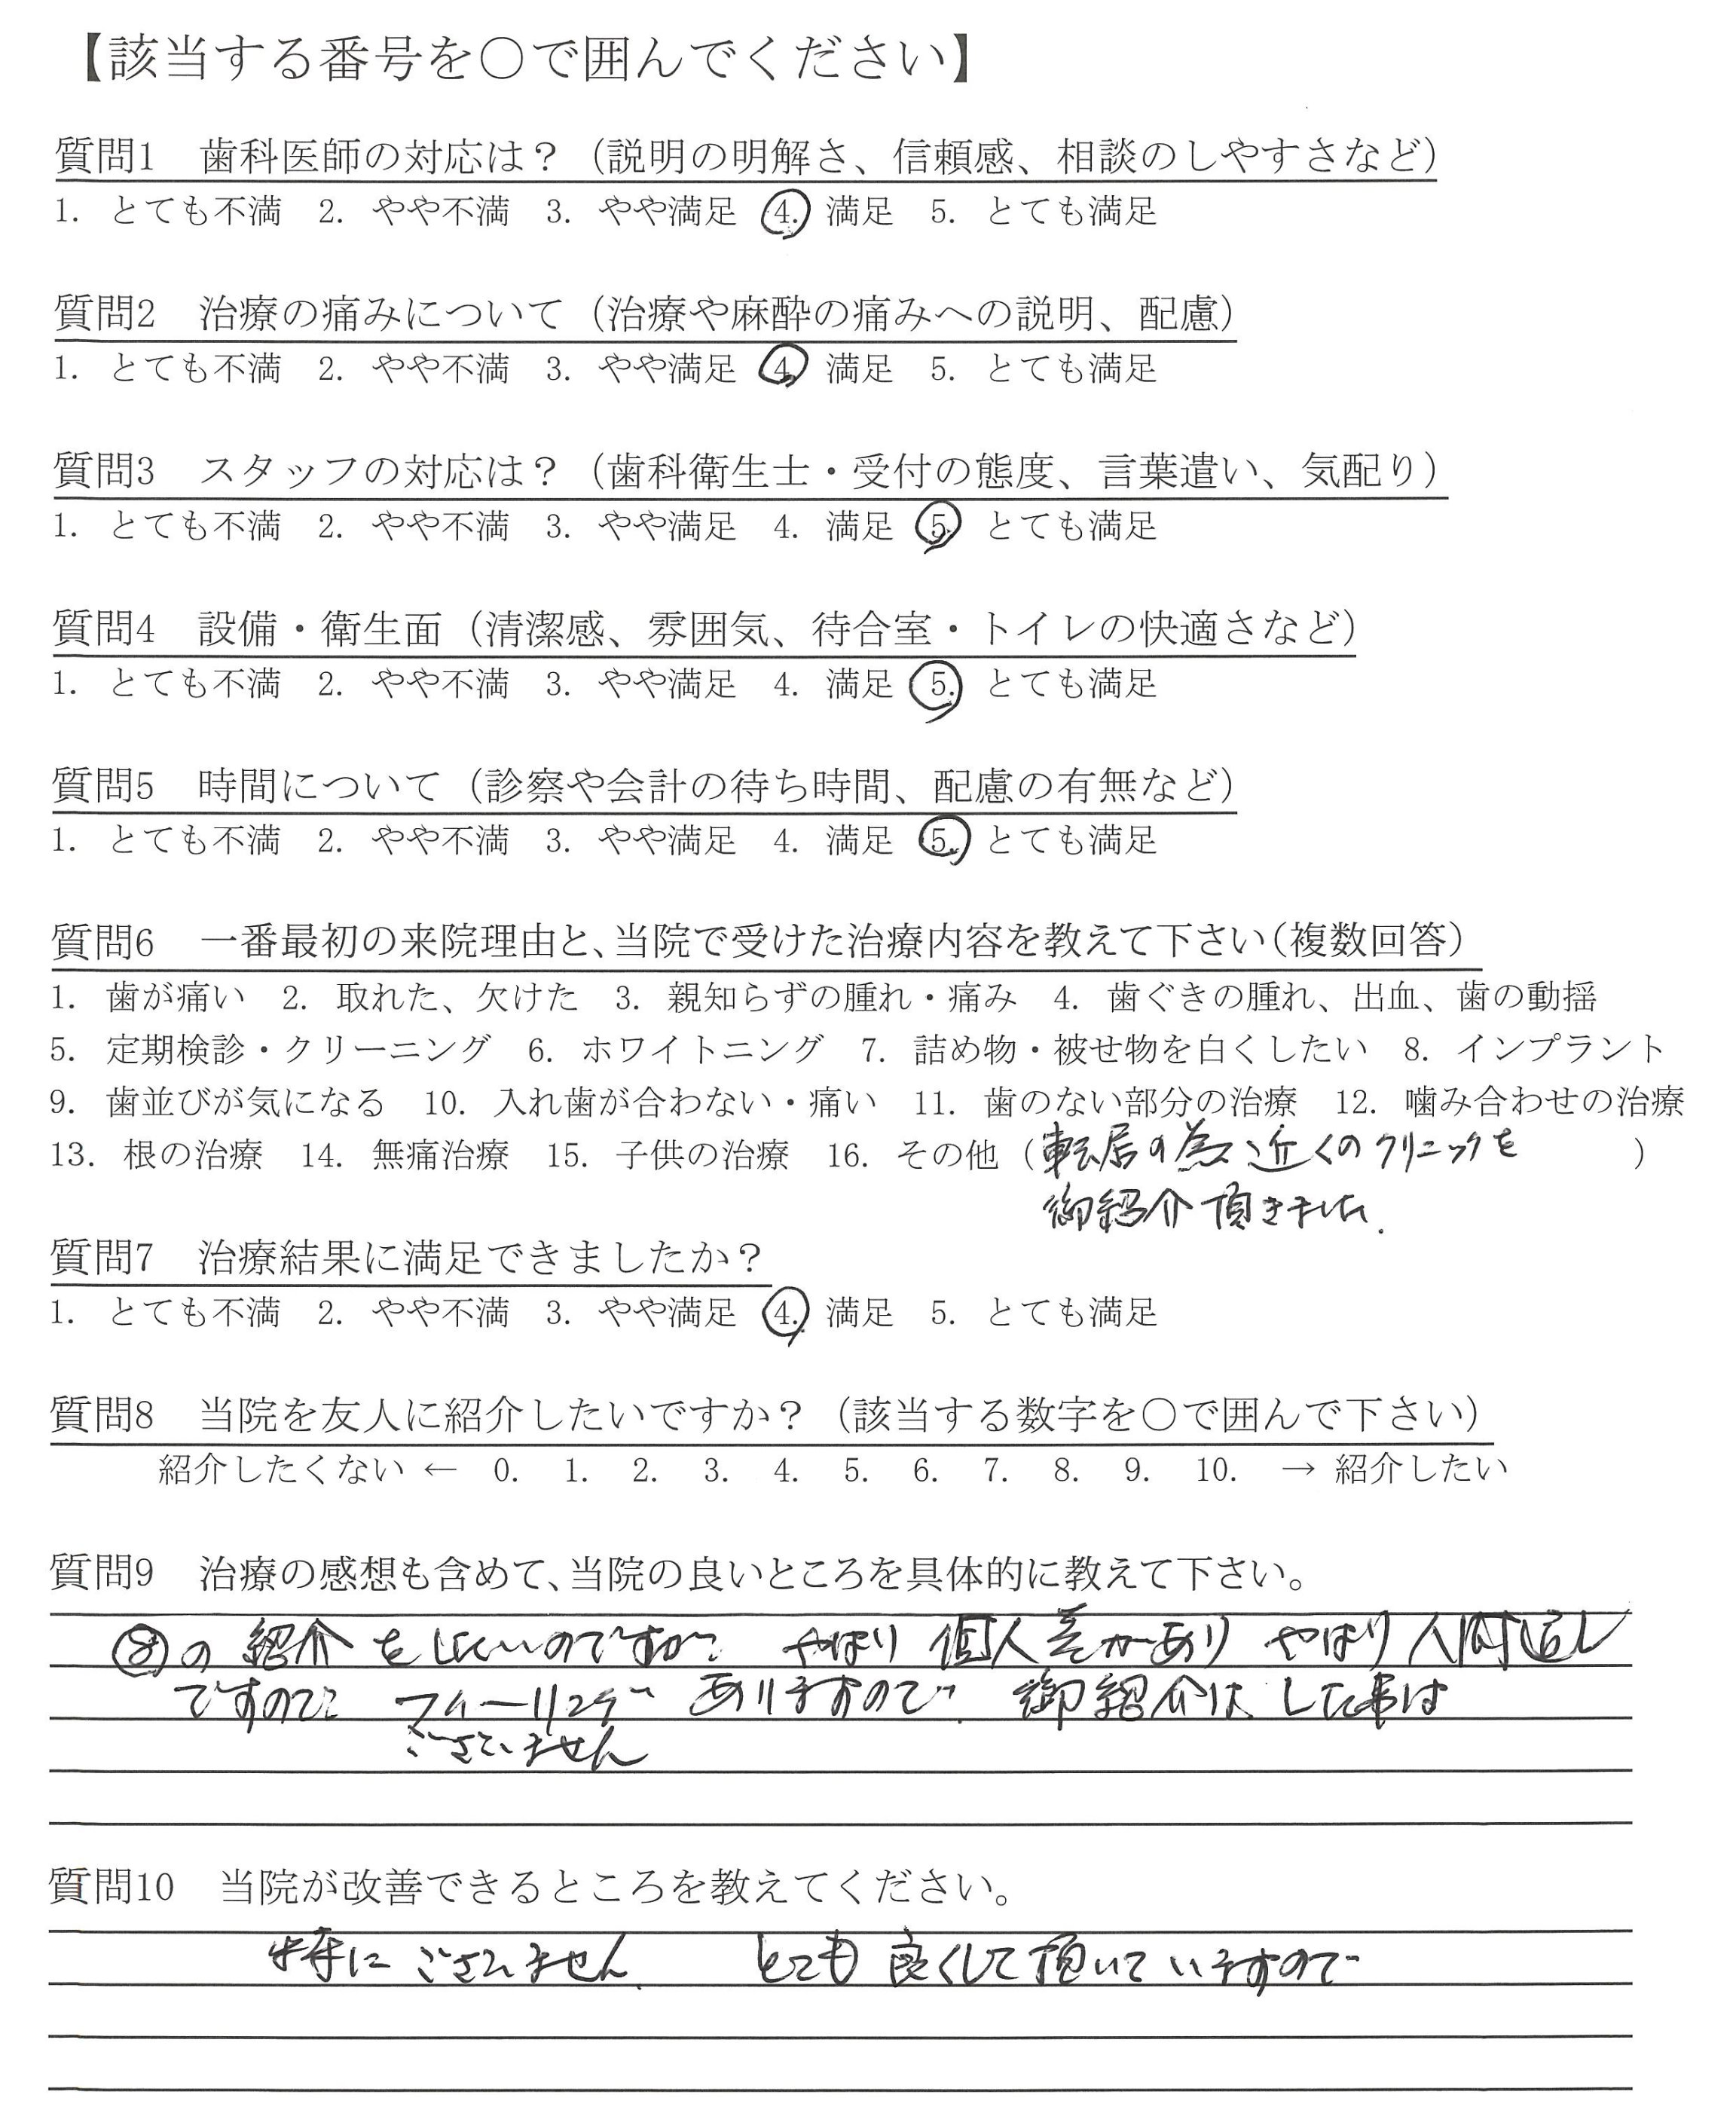 【該当する番号を○で囲んでください】
質問1　歯科医師の対応は？（説明の明解さ、信頼感、相談のしやすさなど）
1. とても不満　2. やや不満　3. やや満足　4. 満足　5. とても満足
質問2　治療の痛みについて（治療や麻酔の痛みへの説明、配慮）
1. とても不満　2. やや不満　3. やや満足　4. 満足　5. とても満足
質問3　スタッフの対応は？（歯科衛生士・受付の態度、言葉遣い、気配り）
1. とても不満　2. やや不満　3. やや満足　4. 満足　5. とても満足
質問4　設備・衛生面（清潔感、雰囲気、待合室・トイレの快適さなど）
1. とても不満　2. やや不満　3. やや満足　4. 満足　5. とても満足
質問5　時間について（診察や会計の待ち時間、配慮の有無など）
1. とても不満　2. やや不満　3. やや満足　4. 満足　5. とても満足
質問6　一番最初の来院理由と、当院で受けた治療内容を教えて下さい（複数回答）
1. 歯が痛い　2. 取れた、欠けた　3. 親知らずの腫れ・痛み　4. 歯ぐきの腫れ、出血、歯の動揺
5. 定期検診・クリーニング　6. ホワイトニング　7. 詰め物・被せ物を白くしたい　8. インプラント
9. 歯並びが気になる　10. 入れ歯が合わない・痛い　11. 歯のない部分の治療　12. 噛み合わせの治療
13. 根の治療　14. 無痛治療　15. 子供の治療　16. その他（転居の為 近くのクリニックを　）
御紹介頂きました.
質問7　治療結果に満足できましたか？
1. とても不満　2. やや不満　3. やや満足　4. 満足　5. とても満足
質問8　当院を友人に紹介したいですか？（該当する数字を○で囲んで下さい）
紹介したくない ← 0. 1. 2. 3. 4. 5. 6. 7. 8. 9. 10. → 紹介したい
質問9　治療の感想も含めて、当院の良いところを具体的に教えて下さい。
⑧の 紹介 をしたいのですが やはり 個人差があり やはり 人間
ですので フィーリング ありますので 御紹介は した事は
ございません
質問10　当院が改善できるところを教えてください。
特に ございません　とても 良くして頂いて いますので